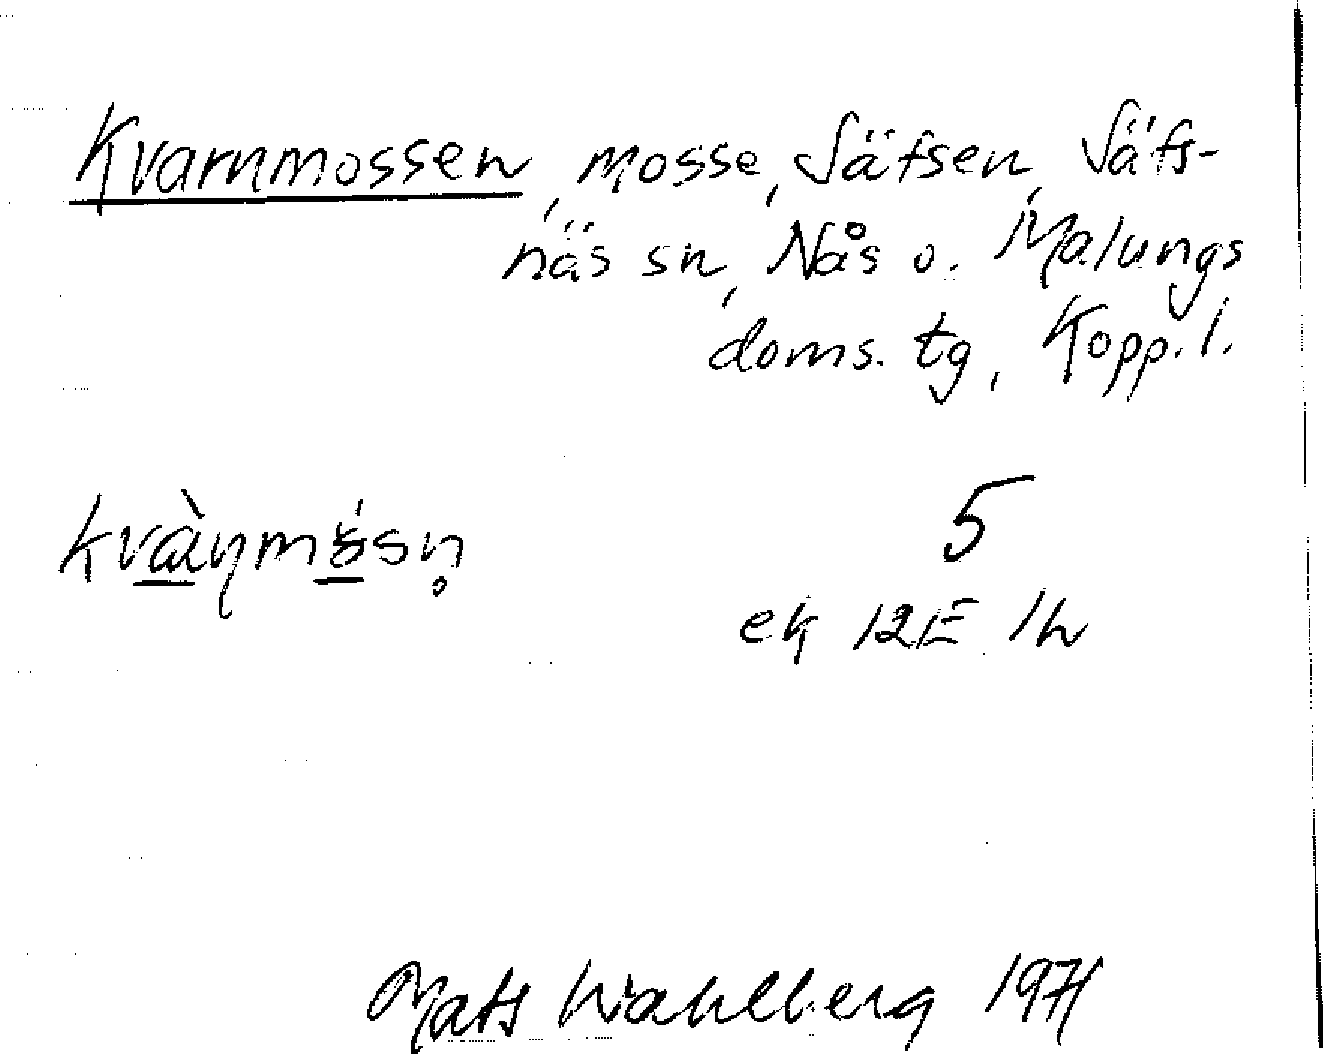 Kvarnmossen, mosse, Säfsen, Säfs-
näs sn, Nås o. Malungs
doms. tg, Kopp. l.
5
ek 12E 1h
Mats Wahlberg 1971